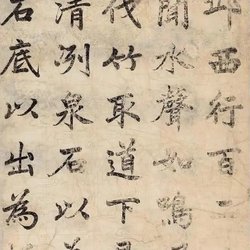 邱西行百
聞水聲如鳴
伐竹取道下
清冽泉石以
石底以出為